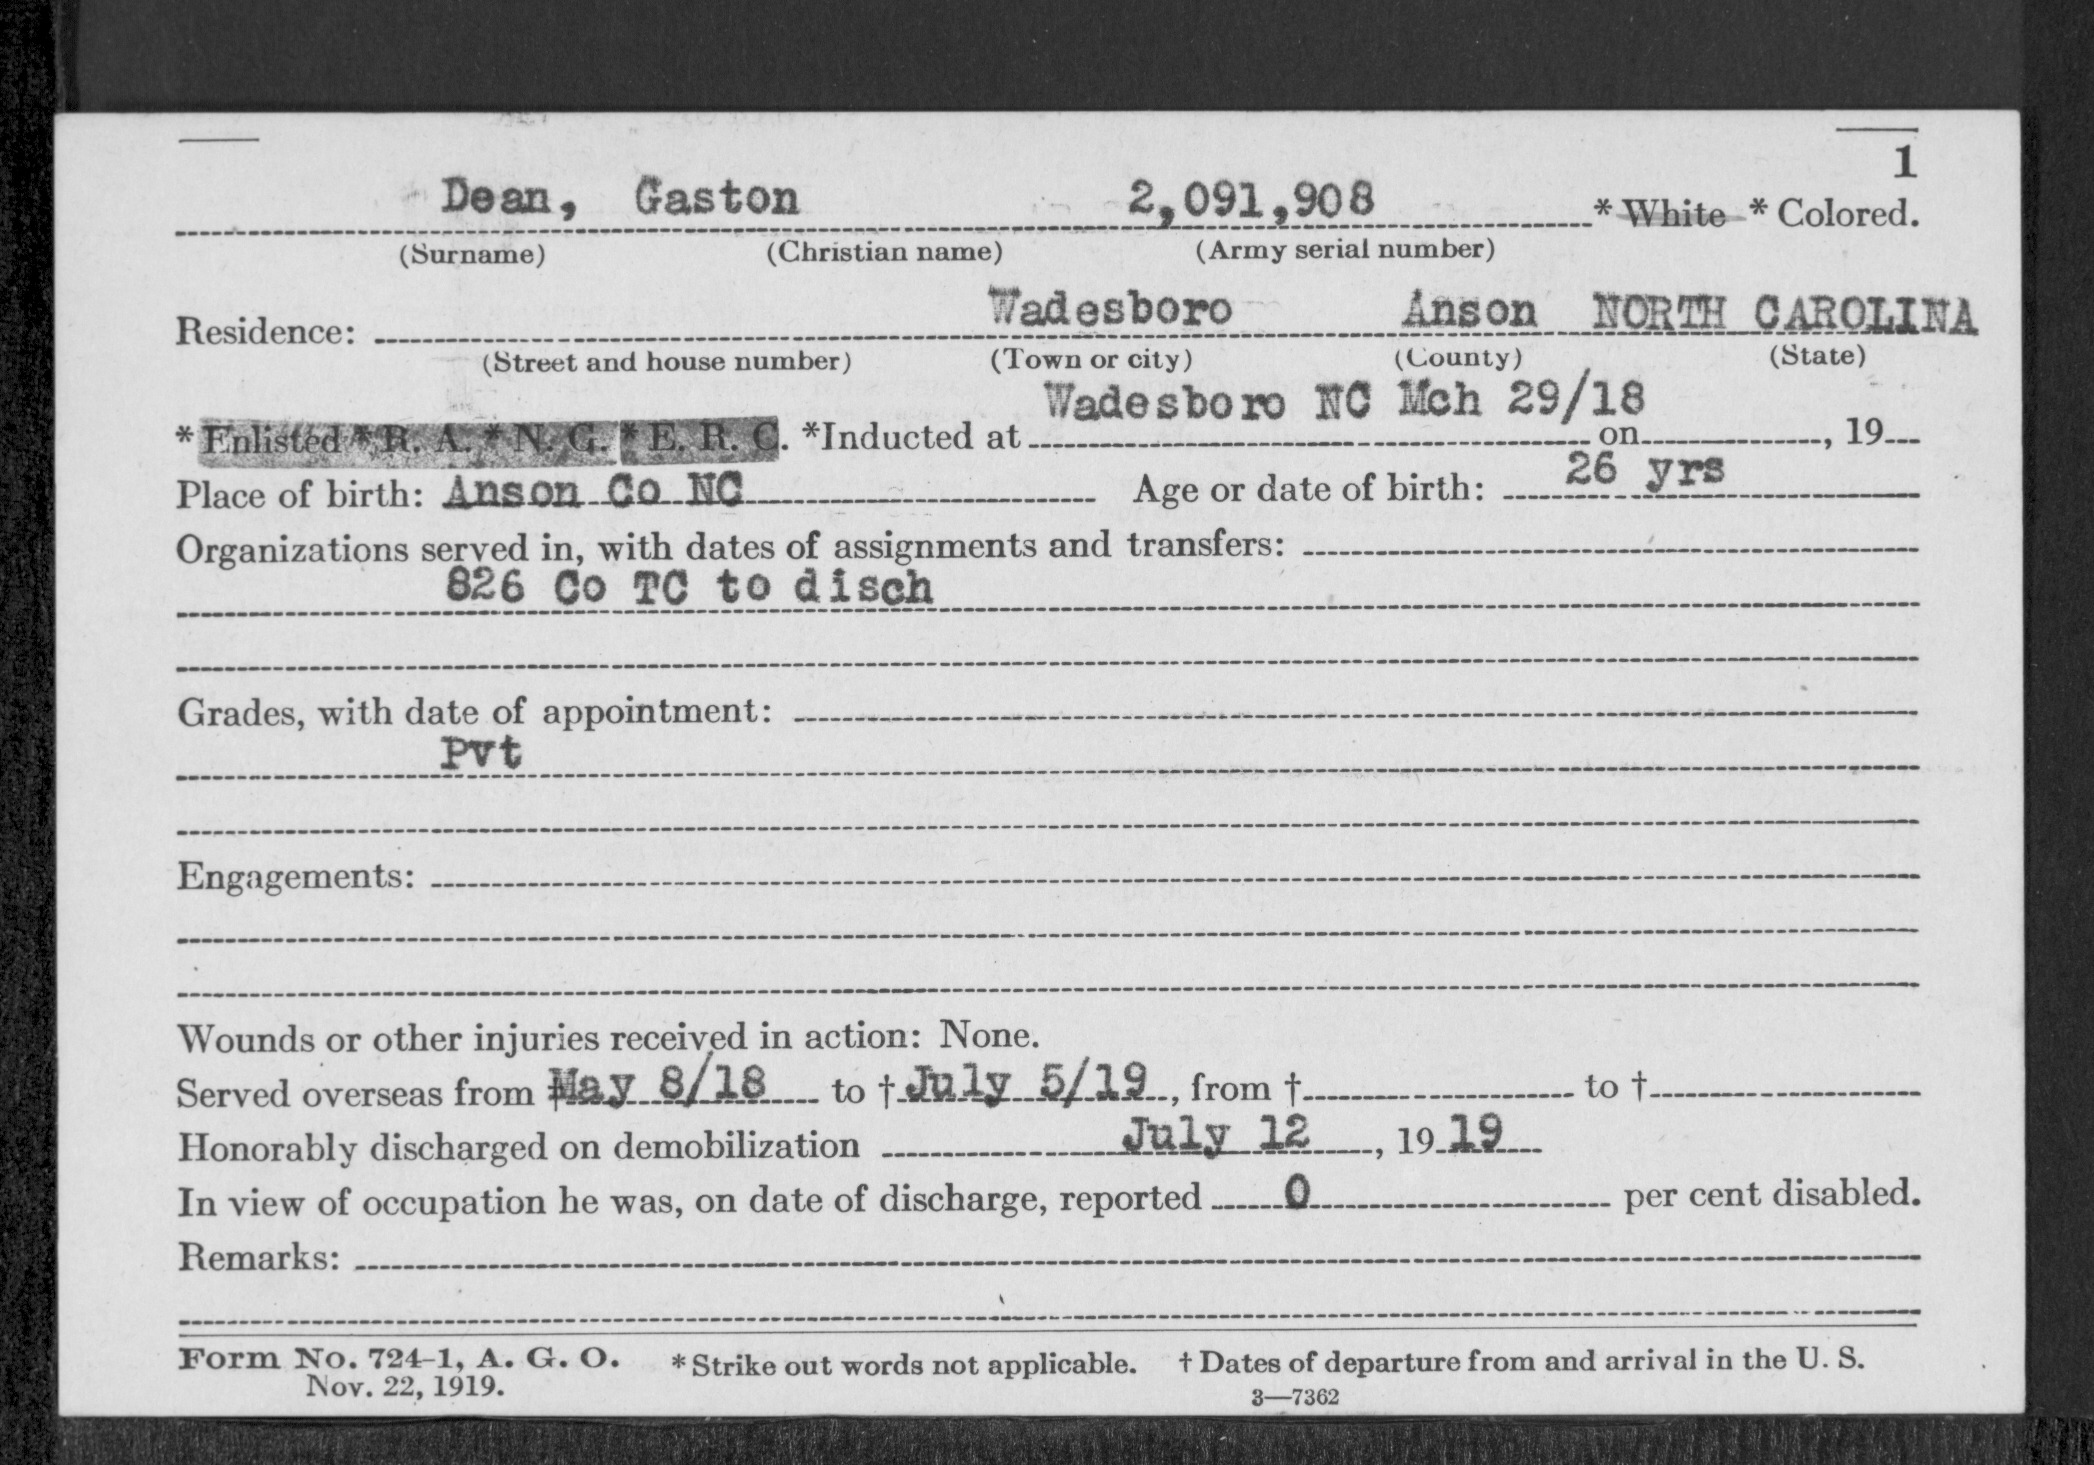 1
Dean, Gaston 2,091,908 * White * Colored.
(Surname) (Christian name) (Army serial number)
Residence: Wadesboro Anson NORTH CAROLINA
(Street and house number) (Town or city) (County) (State)
Wadesboro NC Mch 29/18
* Enlisted * R. A. * N. G. * E. R. C. *Inducted at on , 19
Place of birth: Anson Co NC Age or date of birth: 26 yrs
Organizations served in, with dates of assignments and transfers:
826 Co TC to disch
Grades, with date of appointment:
Pvt
Engagements:
Wounds or other injuries received in action: None.
Served overseas from † May 8/18 to † July 5/19, from † to †
Honorably discharged on demobilization July 12, 19 19
In view of occupation he was, on date of discharge, reported 0 per cent disabled.
Remarks:
Form No. 724-1, A. G. O. * Strike out words not applicable. † Dates of departure from and arrival in the U. S.
Nov. 22, 1919. 3—7362